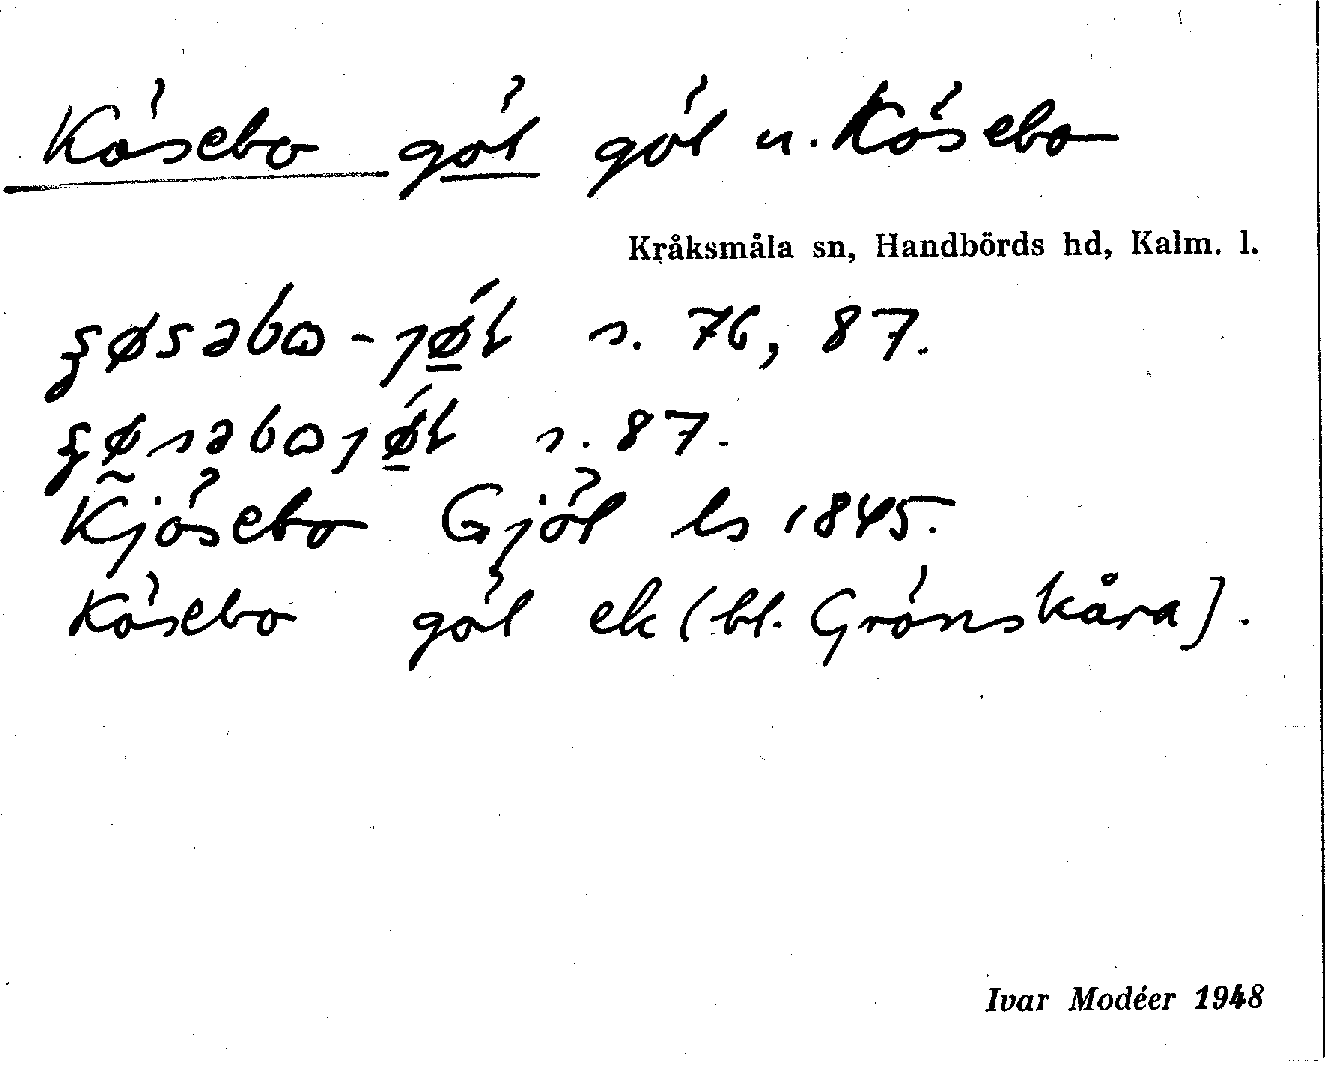 Kösebo göl göl n. Kösebo
Kråksmåla sn, Handbörds hd, Kalm. l.
ʂøsəbɷ-jøl s. 76, 87.
ʂøsəbɷjøl s. 87.
Kjösebo Gjöl ls 1845.
Kösebo göl ek (bl. Grönskåra).
Ivar Modéer 1948